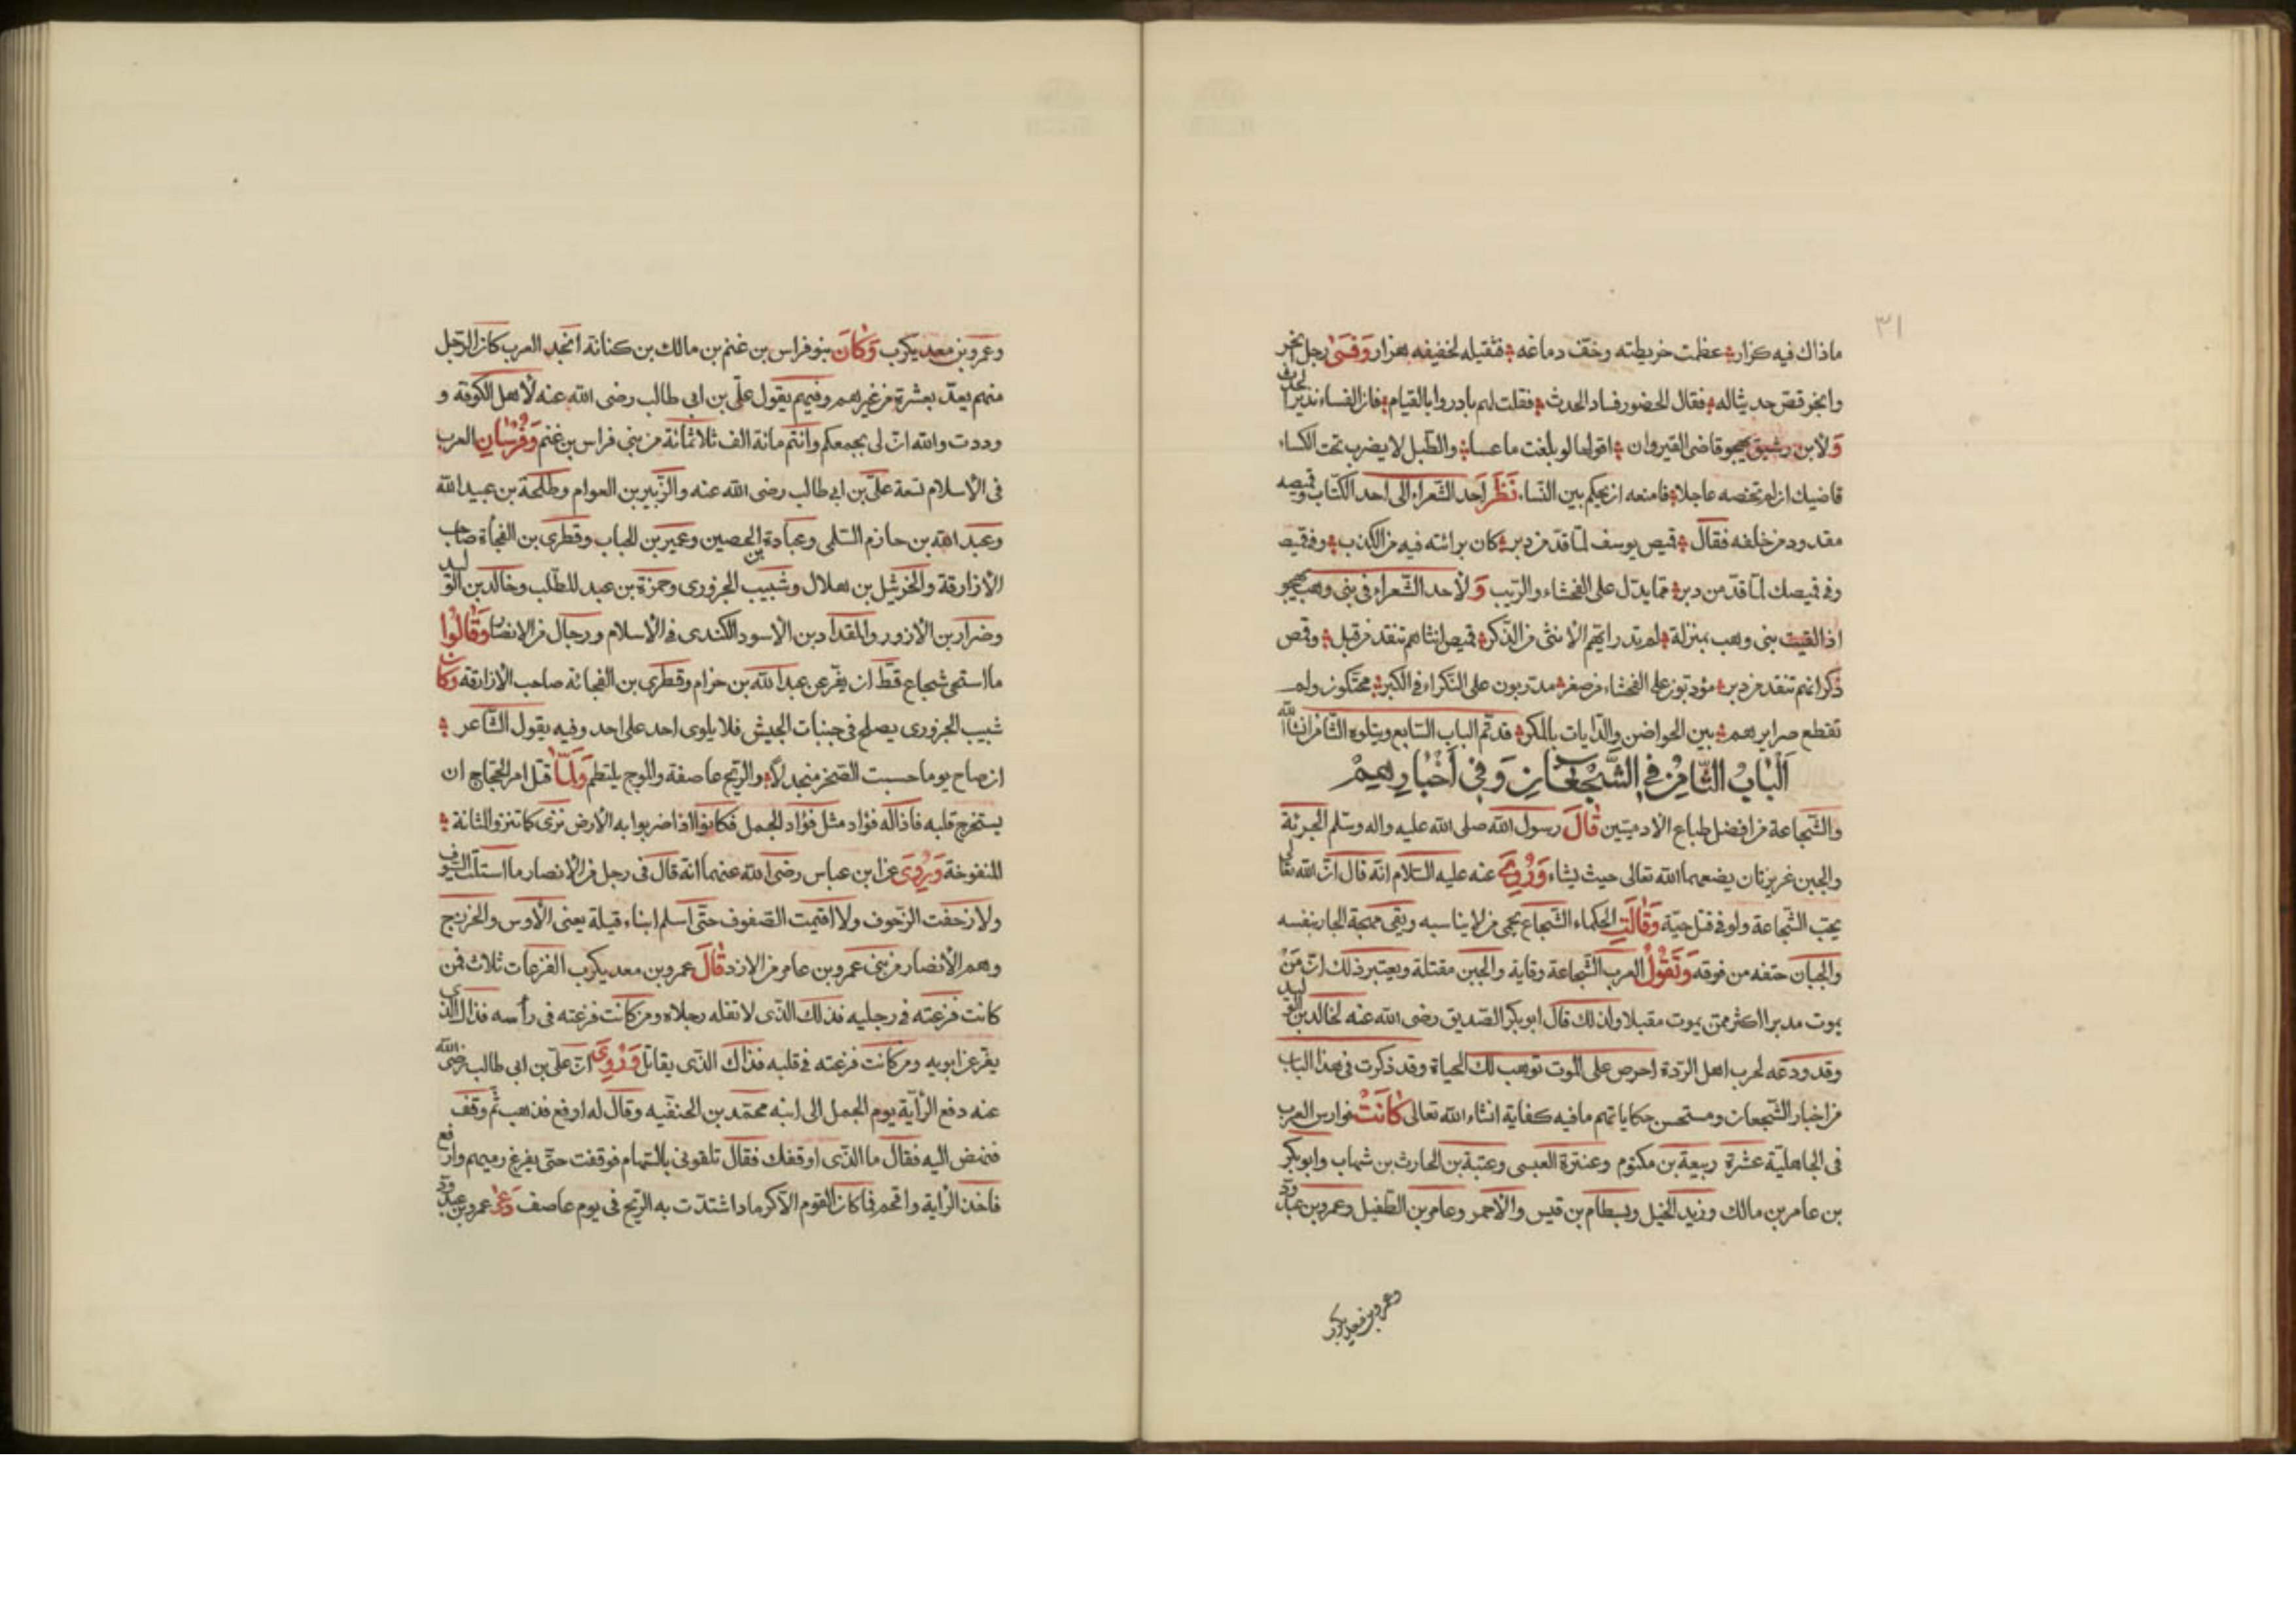 ٣١
ماذاك فيه كزار عظمت خريطته وخفّ دماغه فثقيله لخفيفه هزار وَفَسىٰ رجل ابخر
وابخر قصّ حديثا له فقال الحضور فساد الحدث فقلت لهم بادروا بالقيام فان الفساء نذير الحدث
وَلابن رشيق يهجو قاضى القيروان اقولها لو بلغت ما عسا والطّبل لا يضرب تحت الكساء
قاضيك ان لم تخصه عاجلا فامنعه ان يحكم بين النّساء نَظَرَ احد الشّعراء الى احد الكتّاب وقميصه
مقدود من خلفه فقال قميص يوسف لمّا قدّ من دبر كان برائته فيه من الكذب وفى قميصـ
وفى قميصك لمّا قدّ من دبر ممّا يدلّ على الفحشاء والرّيب وَلأحد الشّعراء فى بنى وهب يهجو
اذا لقيت بنى وهب بمنزلة لم يدر ايّهم الانثى من الذّكر قميص انثاهم تنقد من قبل وقمص
ذكرانهم تنقد من دبر مؤدّبون على الفحشاء من صغر مدرّبون على النّكراء فى الكبر محنّكون ولم
تقطع صرايرهم بين الحواضن والدّايات بالمكر قد تمّ الباب السّابع ويتلوه الثّامن ان شاء اللّه
اَلْبابُ الثّامِنُ فِى الشُّجْعانِ وَفِى اَخْبارِهِمْ
والشّجاعة من افضل طباع الآدميّين قَالَ رسول الله صلى الله عليه واله وسلّم الجرئة
والجبن غريزتان يضعهما الله تعالى حيث يشاء وَرُوِىَ عنه عليه السّلام انّه قال انّ الله تعالى
يحبّ الشّجاعة ولو فى قتل حيّة وَقَالَتِ الحكماء الشّجاع يحمى من لا يناسبه ويقى مهجة الجار بنفسه
والجبان حتفه من فوقه وَتَقُولُ العرب الشّجاعة وقاية والجبن مقتلة ويعتبر ذلك انّ مَنْ
يموت مدبرا اكثر ممّن يموت مقبلا ولذلك قال ابو بكر الصّديق رضى الله عنه لخالد بن الوليد
وقد ودعه لحرب اهل الرّدة احرص على الموت توهب لك الحياة وقد ذكرت فى هذا الباب
من اخبار الشّجعان ومستحسن حكاياتهم ما فيه كفاية انشاء الله تعالى كَانَتْ فوارس العرب
فى الجاهليّة عشرة ربيعة بن مكتوم وعنترة العبسى وعتبة بن الحارث بن شهاب وابو بكر
بن عامر بن مالك وزيد الخيل وبسطام بن قيس والأحمر وعامر بن الطّفيل وعمرو بن عبدودّ
وعمرو بن معديكرب
وعمرو بن معديكرب وَكَانَ بنو فراس بن غنم بن مالك بن كنانة انجد العرب كان الرّجل
منهم يعدّ بعشرة من غيرهم وفيهم يقول علىّ بن ابى طالب رضى الله عنه لأهل الكوفة و
وددت والله انّ لى بجمعكم وانتم مائة الف ثلاثمائة من بنى فراس بن غنم وَفُرْسَانِ العرب
فى الأسلام تسعة علىّ بن ابى طالب رضى الله عنه والزّبير بن العوام وطلحة بن عبيد الله
وعبد الله بن حازم السّلمى وعبادة بن الحصين وعمير بن الحباب وقطرى بن الفجأة صاحب
الأزارقة والخرشل بن هلال وشبيب الجزورى وحمزة بن عبد المطّلب وخالد بن الوليد
وضرار بن الأزور والمقداد بن الأسود الكندى فى الأسلام ورجال من الانصار وَقَالُوا
ما استحى شجاع قطّ ان يفرّ عن عبد الله بن حزام وقطرى بن الفجائة صاحب الأزارقة وَكانَ
شبيب الجزورى يصلح فى جنبات الجيش فلا يلوى احد على احد وفيه يقول الشّاعر
ان صاح يوما حسبت الصّخر منجدلاً والرّيح عاصفة والموج يلتطم وَلَمّا قتل امر الحجّاج ان
يستخرج قلبه فاذا له فؤاد مثل فؤاد الجمل فكانوا اذا ضربوا به الأرض نزى كما تنزو المثانة
المنفوخة وَيُروىَ عن ابن عباس رضى الله عنهما انّه قال فى رجل من الأنصار ما استلّت السّيوف
ولا زحفت الزّحوف ولا اقيمت الصّفوف حتّى اسلم ابناء قيلة يعنى الأوس والخزرج
وهم الأنصار من بنى عمرو بن عامر من الازد قَالَ عمرو بن معديكرب الفزعات ثلاث فمن
كانت فزعته فى رجليه فذلك الذّى لا تقله رجلاه ومن كانت فزعته فى رأسه فذاك الذى
يفرّ عن ابويه ومن كانت فزعته فى قلبه فذاك الذّى يقاتل وَرُوِىَ انّ علىّ بن ابى طالب رضى الله
عنه دفع الرّاية يوم الجمل الى ابنه محمّد بن الحنفيّه وقال له ارفع فذهب ثمّ وقف
فنهض اليه فقال ما الذّى اوقفك فقال تلقونى بالسّهام فوقفت حتّى يفرغ رميهم وارفع
فاخذ الرّاية واقحم فما كان القوم الّا كرماد اشتدّت به الرّيح فى يوم عاصف وَعَنْ عمرو بن عبدودّ